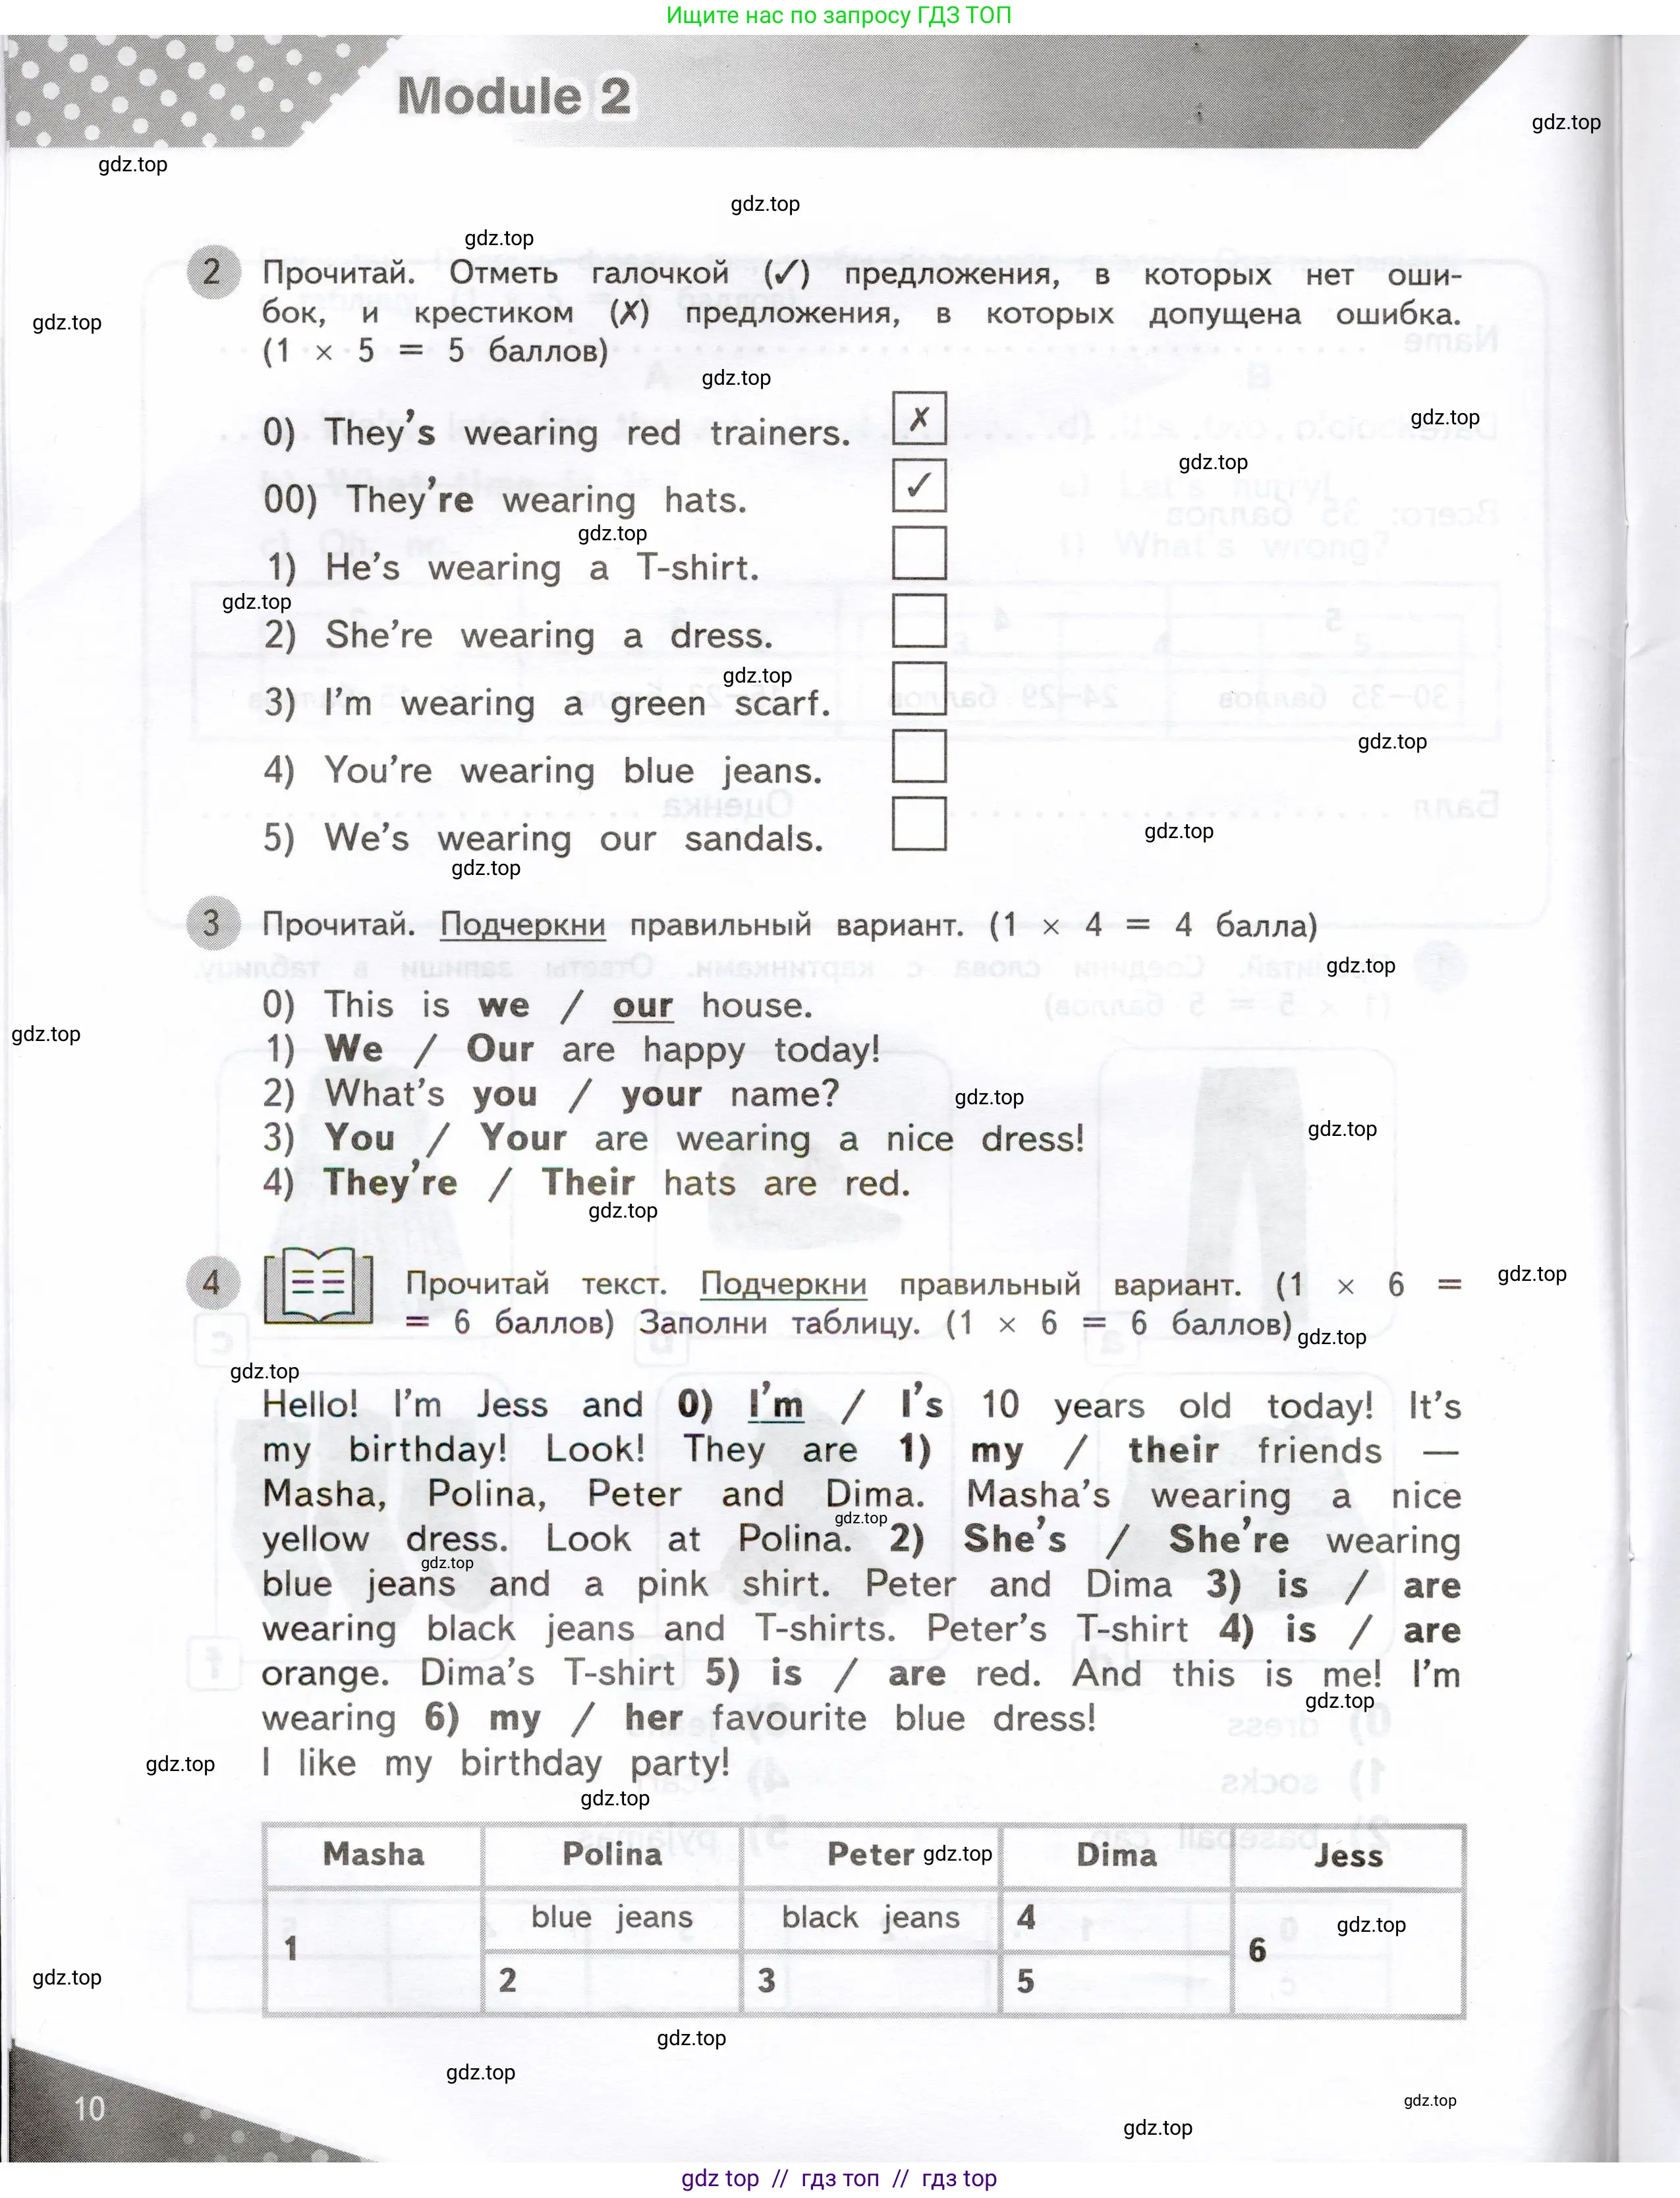 Ищите нас по запросу ГДЗ ТОП
Module 2
gdz.top
gdz.top
gdz.top
gdz.top
2 Прочитай. Отметь галочкой (✓) предложения, в которых нет оши-
gdz.top
бок, и крестиком (✗) предложения, в которых допущена ошибка.
(1 × 5 = 5 баллов)
gdz.top
0) They's wearing red trainers. ✗
gdz.top
gdz.top
00) They're wearing hats. ✓
gdz.top
1) He's wearing a T-shirt.
gdz.top
2) She're wearing a dress.
gdz.top
3) I'm wearing a green scarf.
gdz.top
4) You're wearing blue jeans.
5) We's wearing our sandals.
gdz.top
gdz.top
3 Прочитай. Подчеркни правильный вариант. (1 × 4 = 4 балла)
gdz.top
0) This is we / our house.
gdz.top
1) We / Our are happy today!
2) What's you / your name?
gdz.top
3) You / Your are wearing a nice dress!
gdz.top
4) They're / Their hats are red.
gdz.top
4 Прочитай текст. Подчеркни правильный вариант. (1 × 6 =
gdz.top
= 6 баллов) Заполни таблицу. (1 × 6 = 6 баллов)
gdz.top
gdz.top
Hello! I'm Jess and 0) I'm / I's 10 years old today! It's
my birthday! Look! They are 1) my / their friends —
Masha, Polina, Peter and Dima. Masha's wearing a nice
gdz.top
yellow dress. Look at Polina. 2) She's / She're wearing
gdz.top
blue jeans and a pink shirt. Peter and Dima 3) is / are
wearing black jeans and T-shirts. Peter's T-shirt 4) is / are
orange. Dima's T-shirt 5) is / are red. And this is me! I'm
gdz.top
wearing 6) my / her favourite blue dress!
I like my birthday party!
gdz.top
gdz.top
Masha Polina Peter Dima Jess
gdz.top
blue jeans black jeans 4
gdz.top
1 6
2 3 5
gdz.top
gdz.top
gdz.top
10
gdz.top
gdz.top
gdz top // гдз топ // гдз top